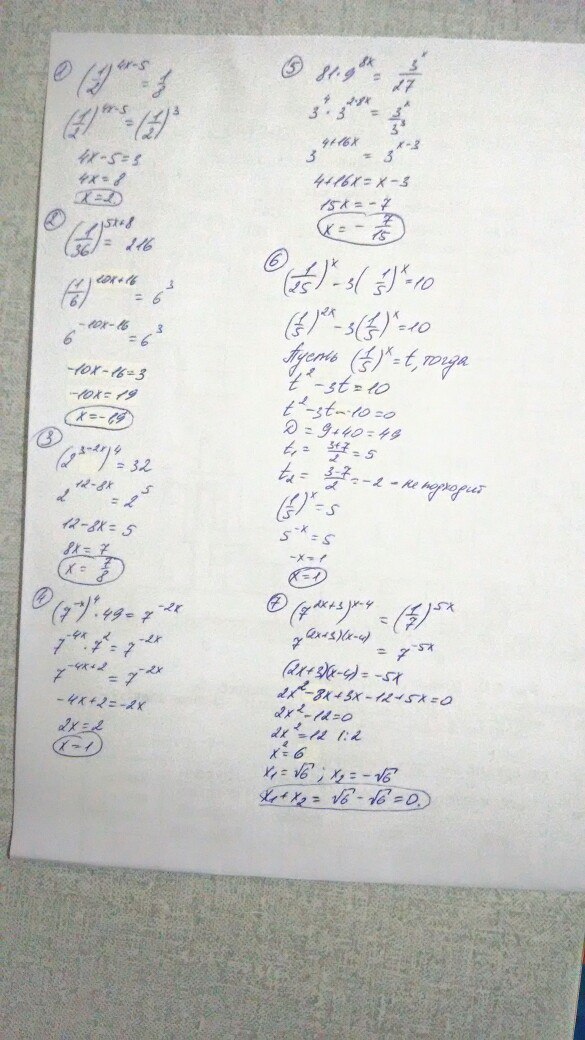 ① (1/2)^(4x-5) = 1/8
(1/2)^(4x-5) = (1/2)^3
4x-5=3
4x=8
x=2
② (1/36)^(5x+8) = 216
(1/6)^(10x+16) = 6^3
6^(-10x-16) = 6^3
-10x-16=3
-10x=19
x=-1,9
③ (2^(3-2x))^4 = 32
2^(12-8x) = 2^5
12-8x=5
8x=7
x= 7/8
④ (7^(-x))^4 · 49 = 7^(-2x)
7^(-4x) · 7^2 = 7^(-2x)
7^(-4x+2) = 7^(-2x)
-4x+2=-2x
2x=2
x=1
⑤ 81·9^(8x) = 3^x/27
3^4 · 3^(2·8x) = 3^x/3^3
3^(4+16x) = 3^(x-3)
4+16x=x-3
15x=-7
x=- 7/15
⑥ (1/25)^x -3(1/5)^x=10
(1/5)^(2x) -3(1/5)^x=10
Пусть (1/5)^x=t, тогда
t^2-3t=10
t^2-3t-10=0
D=9+40=49
t1= (3+7)/2=5
t2= (3-7)/2=-2 - не подходит
(1/5)^x=5
5^(-x)=5
-x=1
x=1
⑦ (7^(2x+3))^(x-4) = (1/7)^(5x)
7^((2x+3)(x-4)) = 7^(-5x)
(2x+3)(x-4)=-5x
2x^2-8x+3x-12+5x=0
2x^2-12=0
2x^2=12 |:2
x^2=6
x1=√6 ; x2=-√6
x1+x2= √6-√6=0.